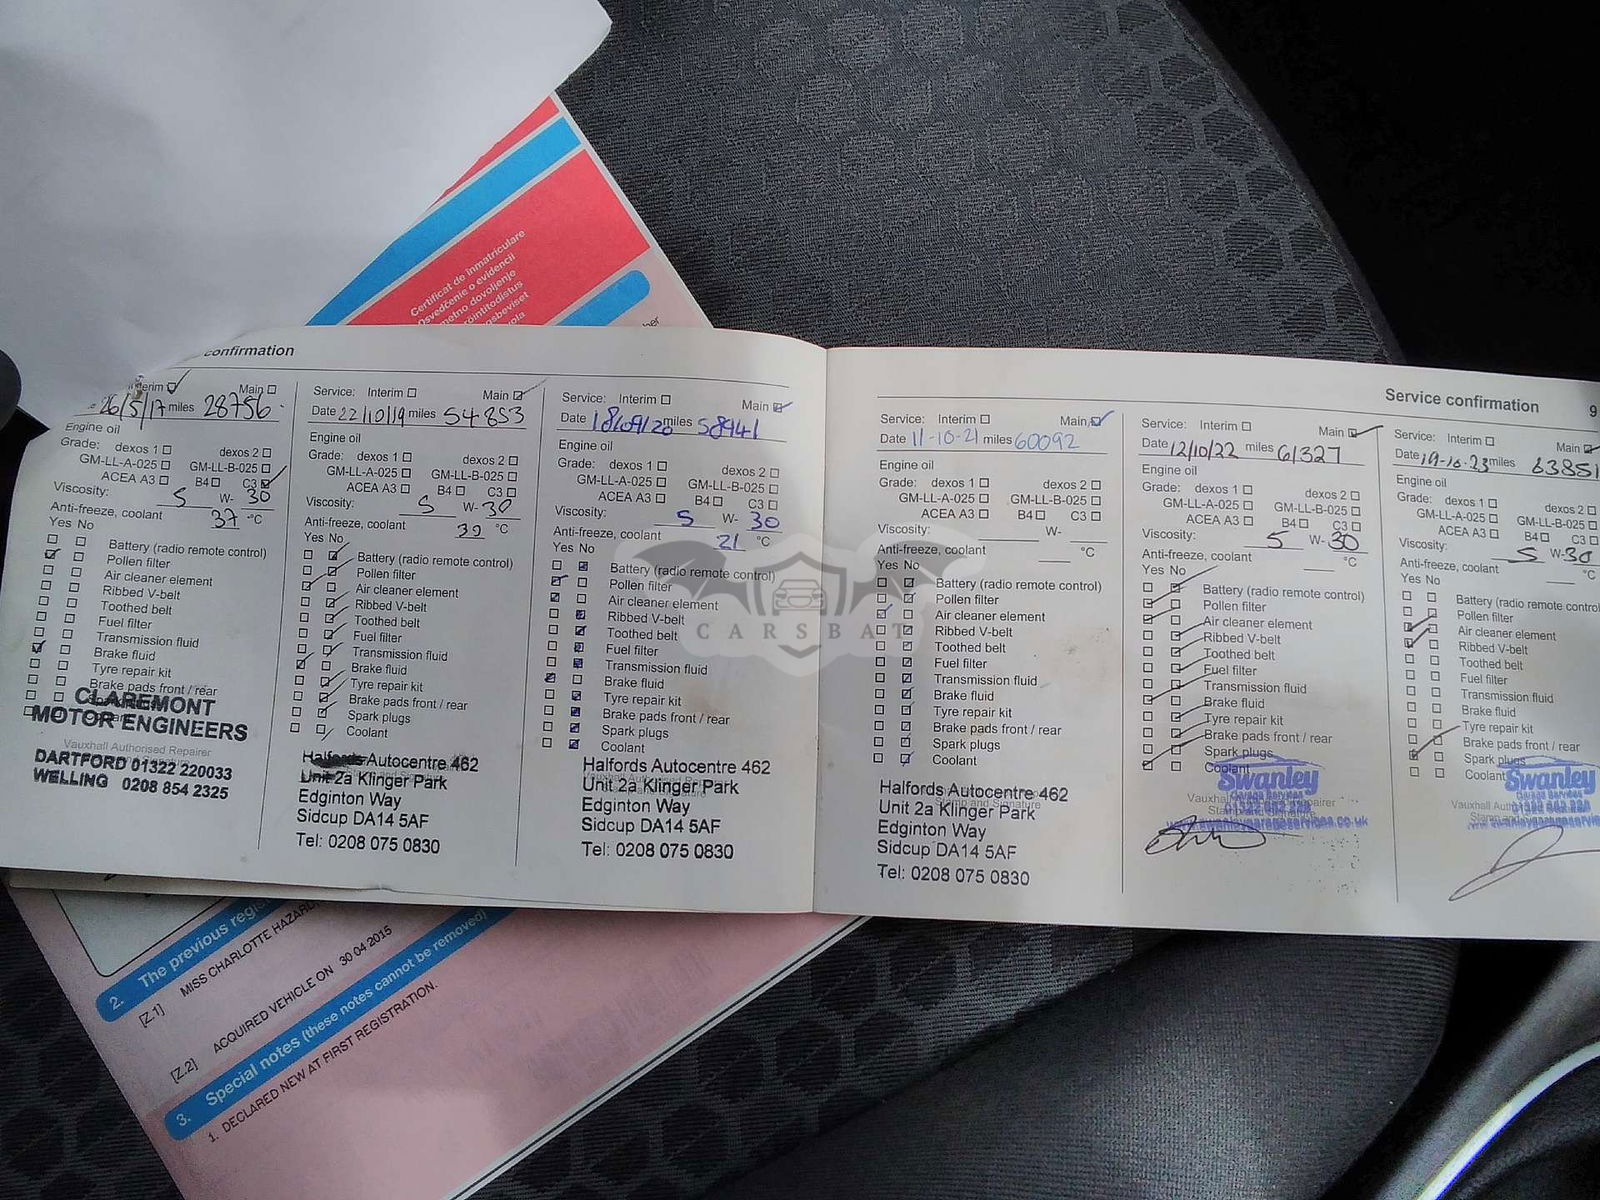 Certificat de înmatriculare
Osvedčenie o evidencii
confirmation
Service confirmation
9
Interim
Main
26/5/17 miles 28756
Engine oil
Grade: dexos 1
dexos 2
GM-LL-A-025
GM-LL-B-025
ACEA A3
B4
C3
Viscosity: 5 W- 30
Anti-freeze, coolant 37 °C
Yes No
Battery (radio remote control)
Pollen filter
Air cleaner element
Ribbed V-belt
Toothed belt
Fuel filter
Transmission fluid
Brake fluid
Tyre repair kit
Brake pads front / rear
CLAREMONT
MOTOR ENGINEERS
Vauxhall Authorised Repairer
DARTFORD 01322 220033
WELLING 0208 854 2325
Service: Interim
Main
Date 22/10/19 miles 54853
Engine oil
Grade: dexos 1
dexos 2
GM-LL-A-025
GM-LL-B-025
ACEA A3
B4
C3
Viscosity: 5 W- 30
Anti-freeze, coolant °C
Yes No
Battery (radio remote control)
Pollen filter
Air cleaner element
Ribbed V-belt
Toothed belt
Fuel filter
Transmission fluid
Brake fluid
Tyre repair kit
Brake pads front / rear
Spark plugs
Coolant
Halfords Autocentre 462
Unit 2a Klinger Park
Edginton Way
Sidcup DA14 5AF
Tel: 0208 075 0830
Service: Interim
Main
Date 18/09/20 miles 58941
Engine oil
Grade: dexos 1
dexos 2
GM-LL-A-025
GM-LL-B-025
ACEA A3
B4
C3
Viscosity: 5 W- 30
Anti-freeze, coolant 21 °C
Yes No
Battery (radio remote control)
Pollen filter
Air cleaner element
Ribbed V-belt
Toothed belt
Fuel filter
Transmission fluid
Brake fluid
Tyre repair kit
Brake pads front / rear
Spark plugs
Coolant
Halfords Autocentre 462
Unit 2a Klinger Park
Edginton Way
Sidcup DA14 5AF
Tel: 0208 075 0830
Service: Interim
Main
Date 11-10-21 miles 60092
Engine oil
Grade: dexos 1
dexos 2
GM-LL-A-025
GM-LL-B-025
ACEA A3
B4
C3
Viscosity: W-
Anti-freeze, coolant °C
Yes No
Battery (radio remote control)
Pollen filter
Air cleaner element
Ribbed V-belt
Toothed belt
Fuel filter
Transmission fluid
Brake fluid
Tyre repair kit
Brake pads front / rear
Spark plugs
Coolant
Halfords Autocentre 462
Stamp and Signature
Unit 2a Klinger Park
Edginton Way
Sidcup DA14 5AF
Tel: 0208 075 0830
Service: Interim
Main
Date 12/10/22 miles 61327
Engine oil
Grade: dexos 1
dexos 2
GM-LL-A-025
GM-LL-B-025
ACEA A3
B4
C3
Viscosity: 5 W- 30
Anti-freeze, coolant °C
Yes No
Battery (radio remote control)
Pollen filter
Air cleaner element
Ribbed V-belt
Toothed belt
Fuel filter
Transmission fluid
Brake fluid
Tyre repair kit
Brake pads front / rear
Spark plugs
Coolant
Swanley
Garage Services
www.swanleygarageservices.co.uk
Service: Interim
Main
Date 19-10-23 miles 63851
Engine oil
Grade: dexos 1
dexos 2
GM-LL-A-025
GM-LL-B-025
ACEA A3
B4
C3
Viscosity: 5 W-30
Anti-freeze, coolant °C
Yes No
Battery (radio remote
Pollen filter
Air cleaner element
Ribbed V-belt
Toothed belt
Fuel filter
Transmission fluid
Brake fluid
Tyre repair kit
Brake pads front / rear
Spark plugs
Coolant
Swanley
CARSBAT
2. The previous
[Z.1] MISS CHARLOTTE
[Z.2] ACQUIRED VEHICLE ON 30 04 2015
3. Special notes (these notes cannot be removed)
1. DECLARED NEW AT FIRST REGISTRATION.